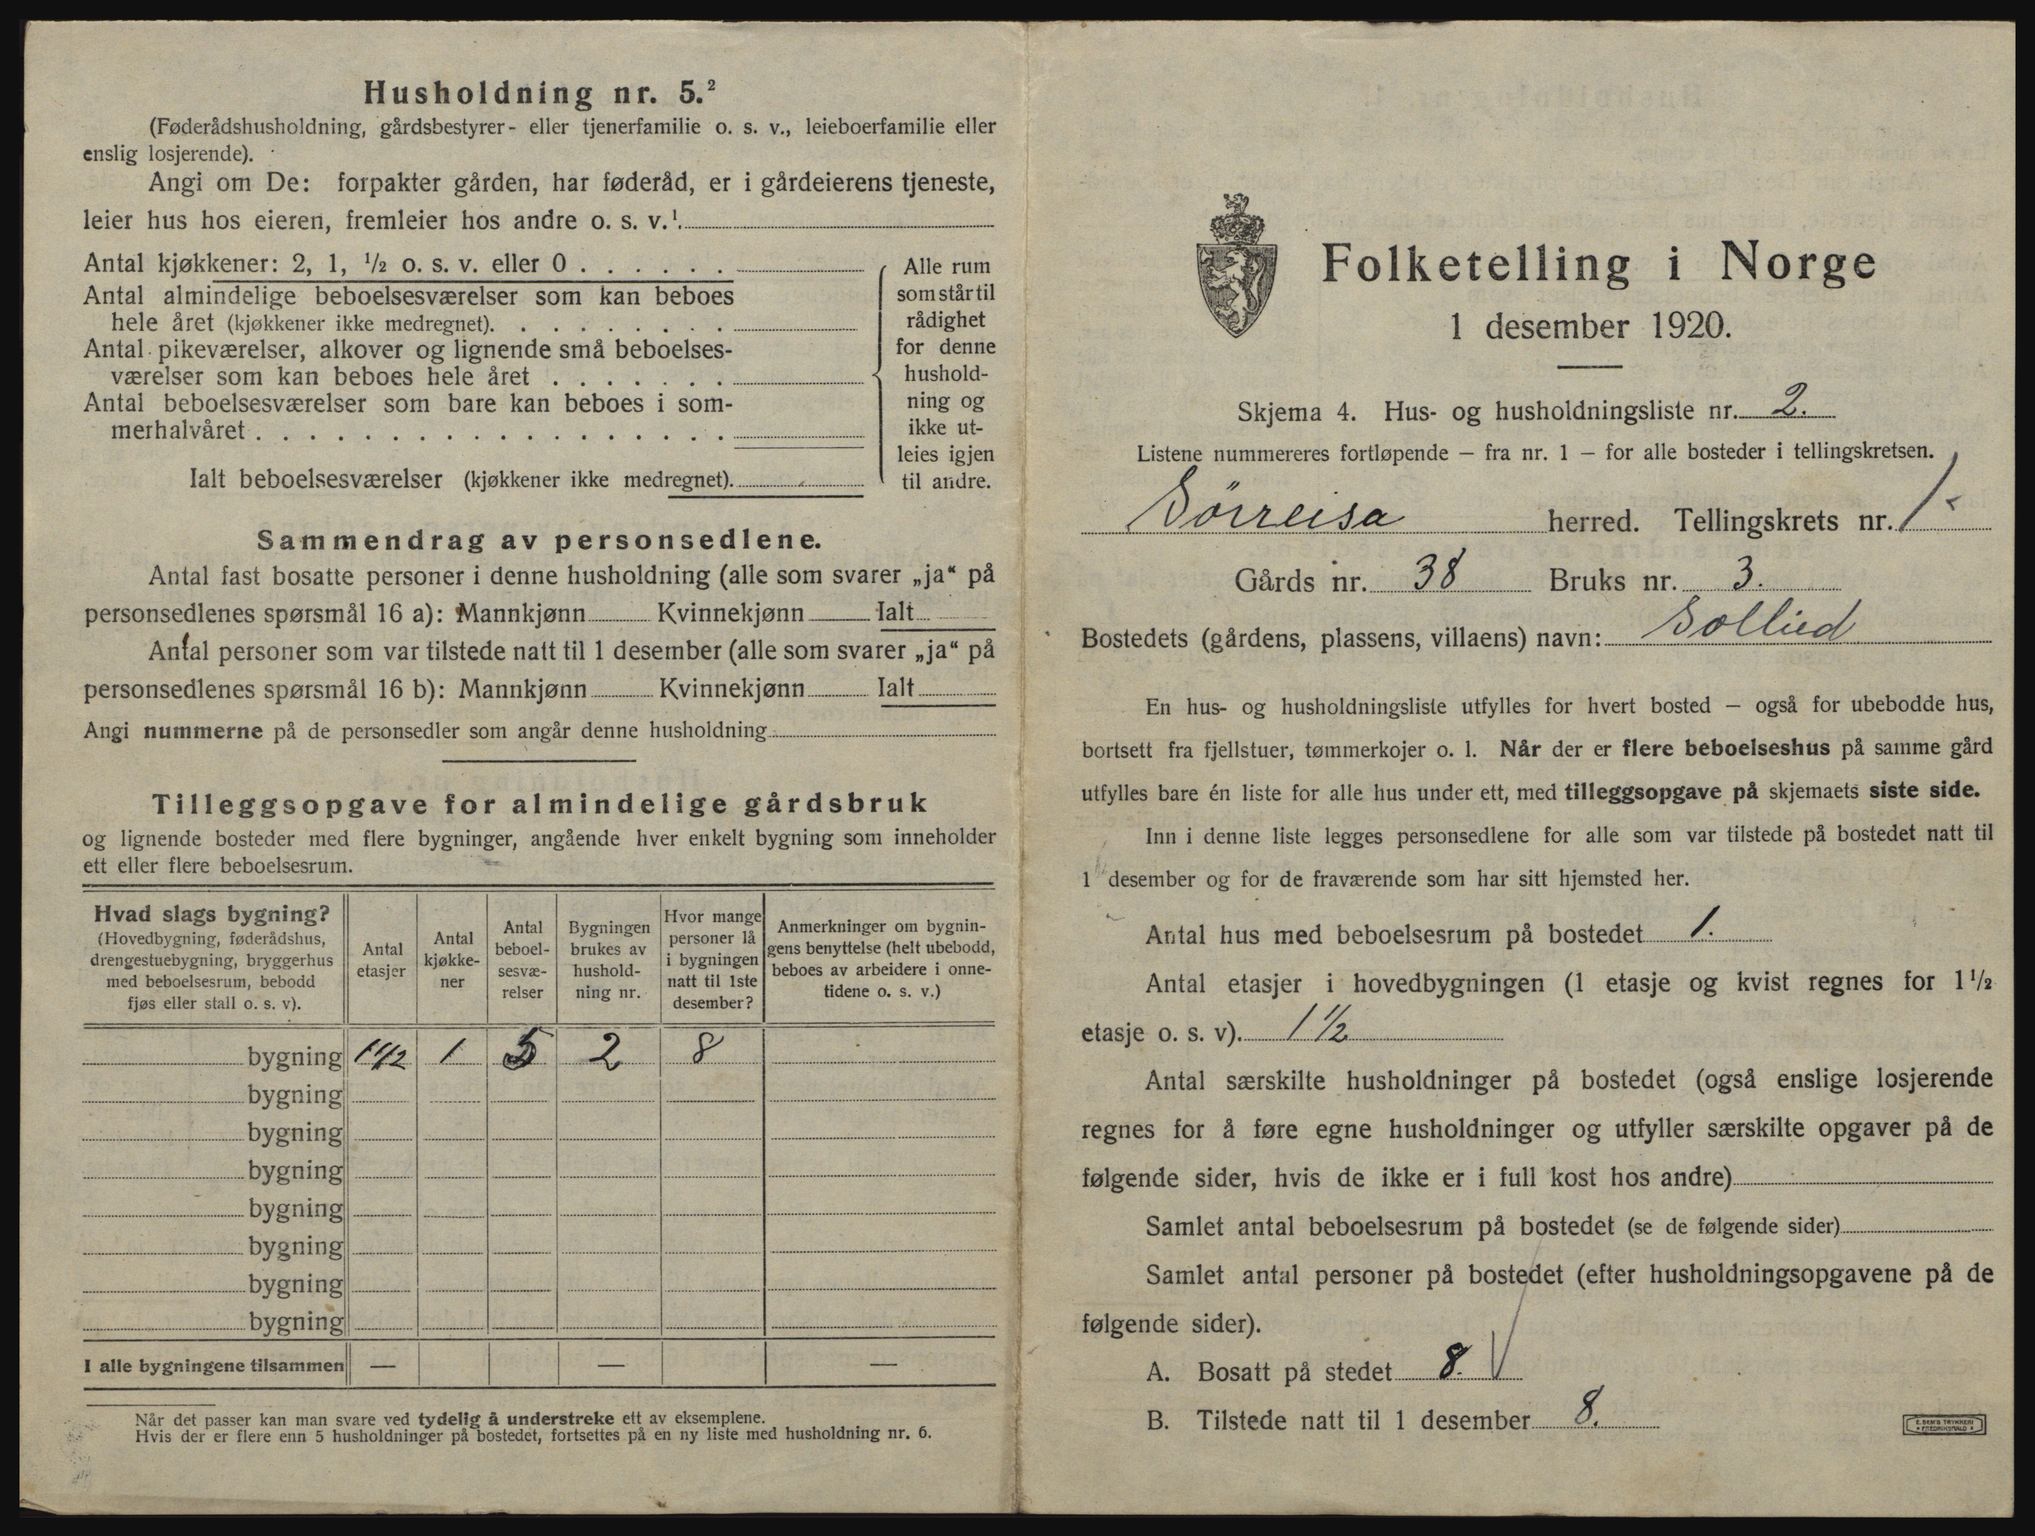 Husholdning nr. 5.²
(Føderådshusholdning, gårdsbestyrer- eller tjenerfamilie o. s. v., leieboerfamilie eller
enslig losjerende).
Angi om De: forpakter gården, har føderåd, er i gårdeierens tjeneste,
leier hus hos eieren, fremleier hos andre o. s. v.¹
Antal kjøkkener: 2, 1, ½ o. s. v. eller 0 . . . . . .
Antal almindelige beboelsesværelser som kan beboes
hele året (kjøkkener ikke medregnet). . . . . . . . .
Antal pikeværelser, alkover og lignende små beboelses-
værelser som kan beboes hele året . . . . . . .
Antal beboelsesværelser som bare kan beboes i som-
merhalvåret . . . . . . . . . . . . . . . . . .
Ialt beboelsesværelser (kjøkkener ikke medregnet).
Alle rum
som står til
rådighet
for denne
hushold-
ning og
ikke ut-
leies igjen
til andre.
Sammendrag av personsedlene.
Antal fast bosatte personer i denne husholdning (alle som svarer „ja“ på
personsedlenes spørsmål 16 a): Mannkjønn Kvinnekjønn Ialt
Antal personer som var tilstede natt til 1 desember (alle som svarer „ja“ på
personsedlenes spørsmål 16 b): Mannkjønn Kvinnekjønn Ialt
Angi nummerne på de personsedler som angår denne husholdning
Tilleggsopgave for almindelige gårdsbruk
og lignende bosteder med flere bygninger, angående hver enkelt bygning som inneholder
ett eller flere beboelsesrum.
Hvad slags bygning?
(Hovedbygning, føderådshus,
drengestuebygning, bryggerhus
med beboelsesrum, bebodd
fjøs eller stall o. s. v).
Antal
etasjer
Antal
kjøkke-
ner
Antal
beboel-
sesvæ-
relser
Bygningen
brukes av
hushold-
ning nr.
Hvor mange
personer lå
i bygningen
natt til 1ste
desember?
Anmerkninger om bygnin-
gens benyttelse (helt ubebodd,
beboes av arbeidere i onne-
tidene o. s. v.)
bygning 1 1/2 1 5 2 8
bygning
bygning
bygning
bygning
bygning
bygning
bygning
I alle bygningene tilsammen — — —
Når det passer kan man svare ved tydelig å understreke ett av eksemplene.
Hvis der er flere enn 5 husholdninger på bostedet, fortsettes på en ny liste med husholdning nr. 6.
Folketelling i Norge
1 desember 1920.
Skjema 4. Hus- og husholdningsliste nr. 2.
Listene nummereres fortløpende — fra nr. 1 — for alle bosteder i tellingskretsen.
Sörreisa herred. Tellingskrets nr. 1
Gårds nr. 38 Bruks nr. 3.
Bostedets (gårdens, plassens, villaens) navn: Sollied
En hus- og husholdningsliste utfylles for hvert bosted — også for ubebodde hus,
bortsett fra fjellstuer, tømmerkojer o. l. Når der er flere beboelseshus på samme gård
utfylles bare én liste for alle hus under ett, med tilleggsopgave på skjemaets siste side.
Inn i denne liste legges personsedlene for alle som var tilstede på bostedet natt til
1 desember og for de fraværende som har sitt hjemsted her.
Antal hus med beboelsesrum på bostedet 1.
Antal etasjer i hovedbygningen (1 etasje og kvist regnes for 1½
etasje o. s. v). 1 1/2
Antal særskilte husholdninger på bostedet (også enslige losjerende
regnes for å føre egne husholdninger og utfyller særskilte opgaver på de
følgende sider, hvis de ikke er i full kost hos andre)
Samlet antal beboelsesrum på bostedet (se de følgende sider)
Samlet antal personer på bostedet (efter husholdningsopgavene på de
følgende sider).
A. Bosatt på stedet 8.
B. Tilstede natt til 1 desember 8.